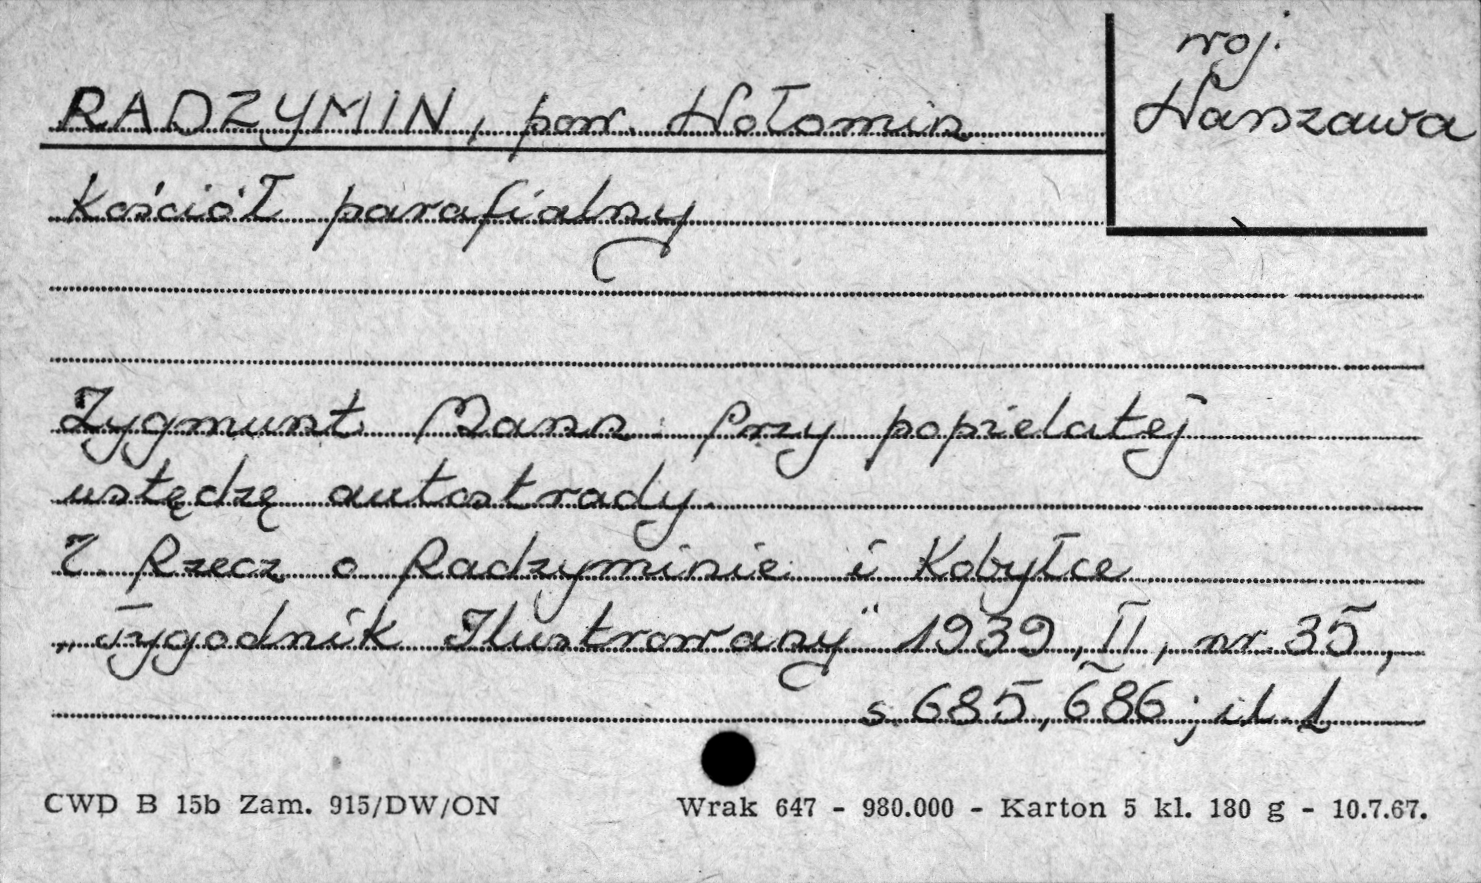 woj.
Warszawa
RADZYMIN, pow. Wołomin
Kościół parafialny
Zygmunt Mann. Przy popielatej
wstędzę autostrady.
2. Rzecz o Radzyminie i Kobyłce
„Tygodnik Ilustrowany" 1939, II, nr. 35,
s. 685, 686; il. 1
CWD B 15b Zam. 915/DW/ON Wrak 647 - 980.000 - Karton 5 kl. 180 g - 10.7.67.